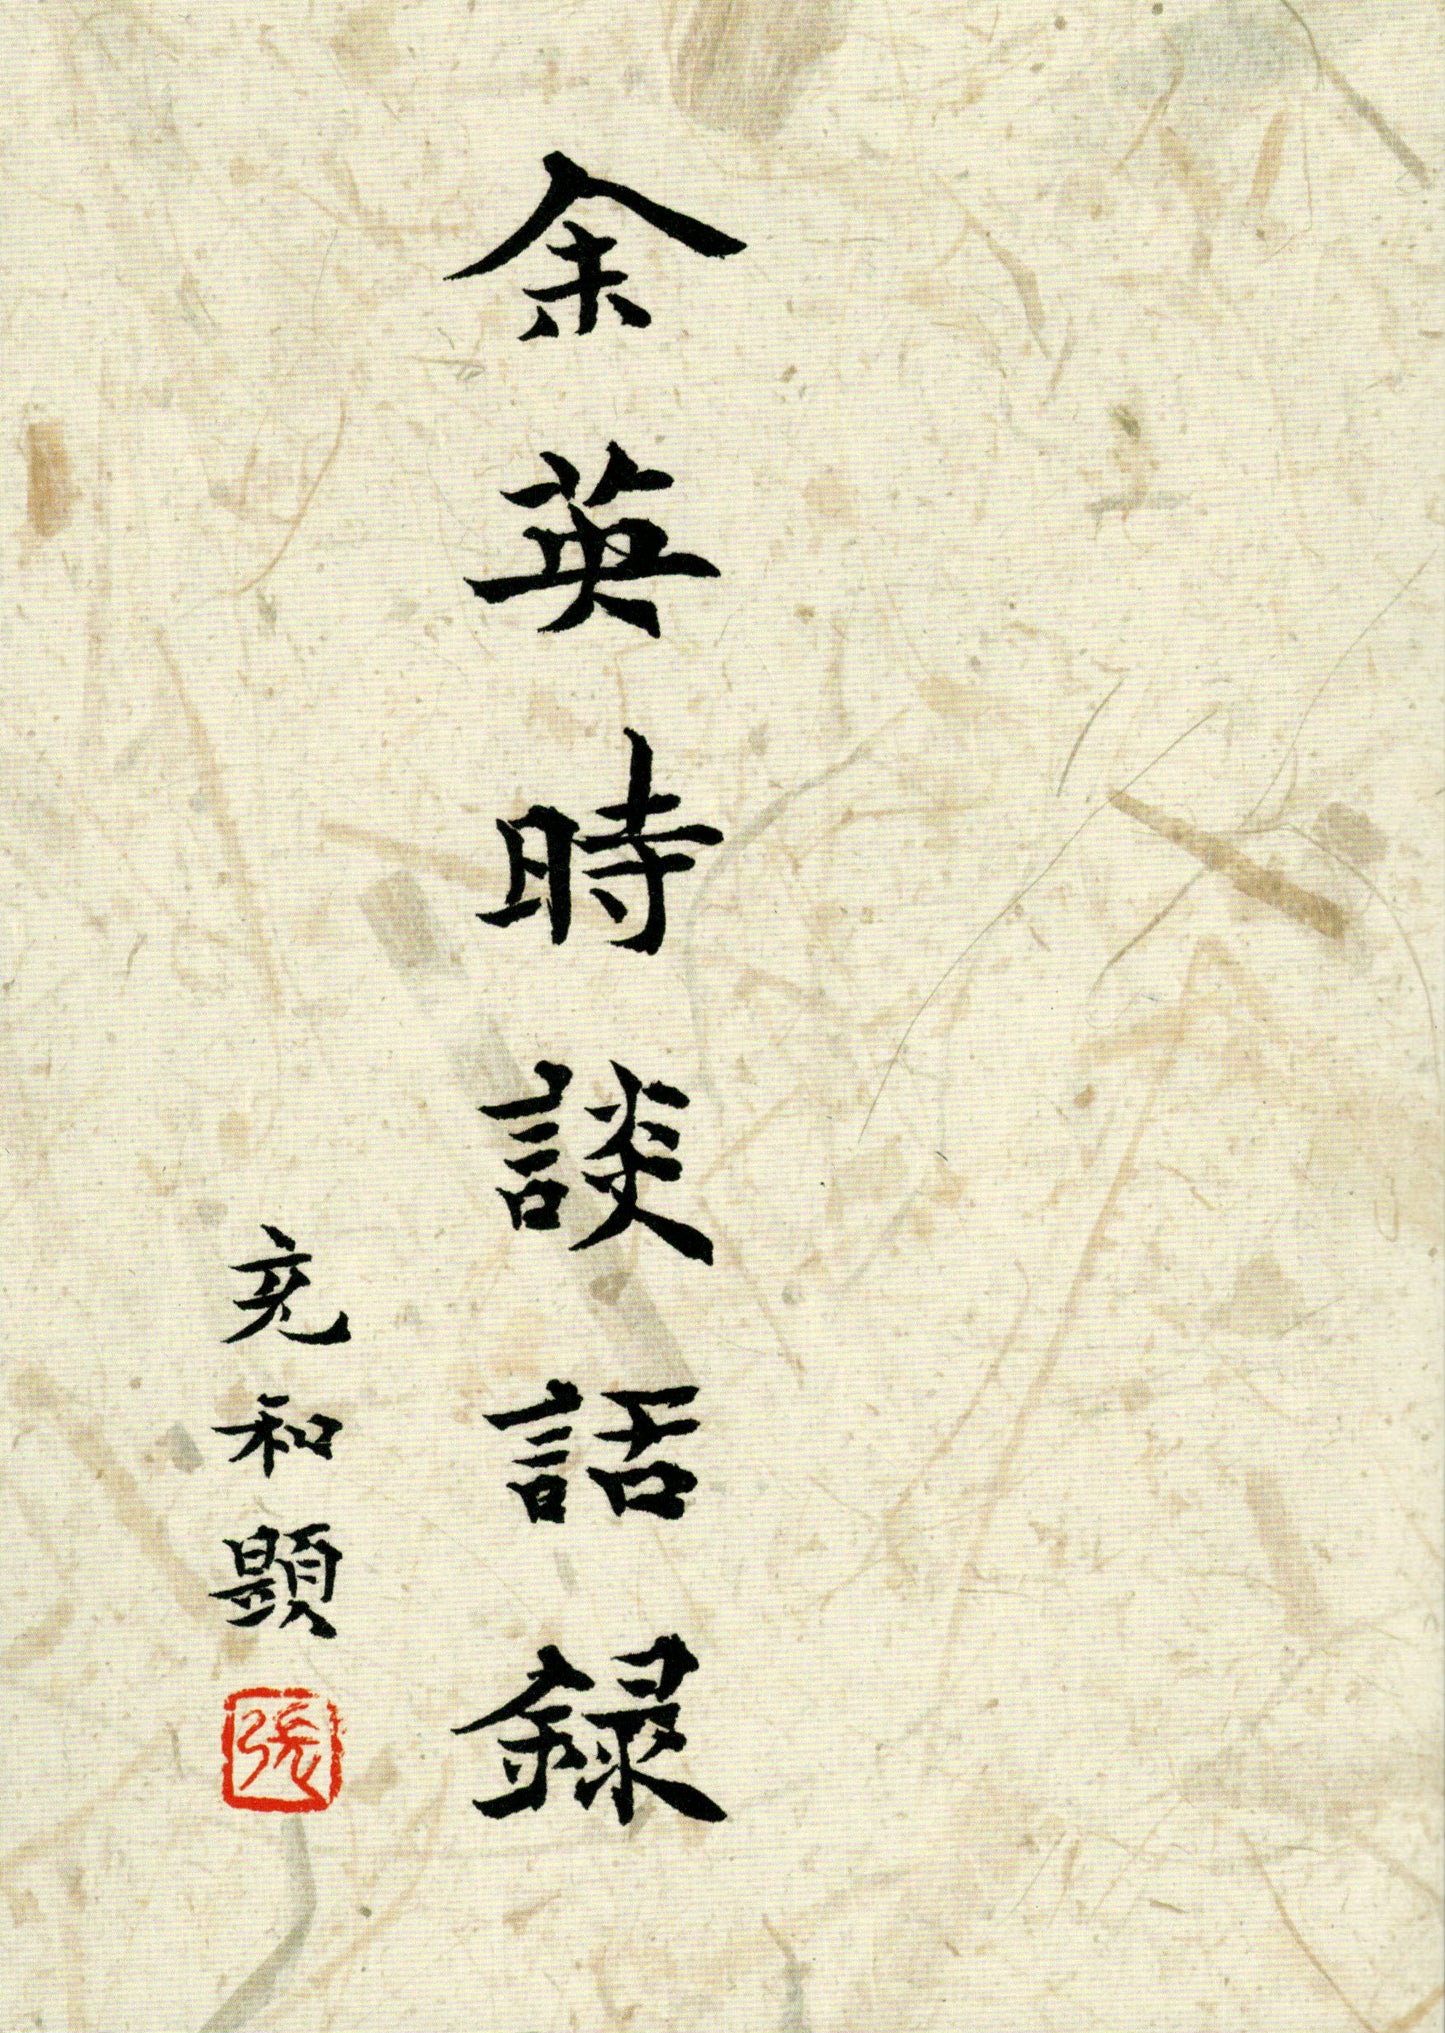 余英時談話録
充和題
張